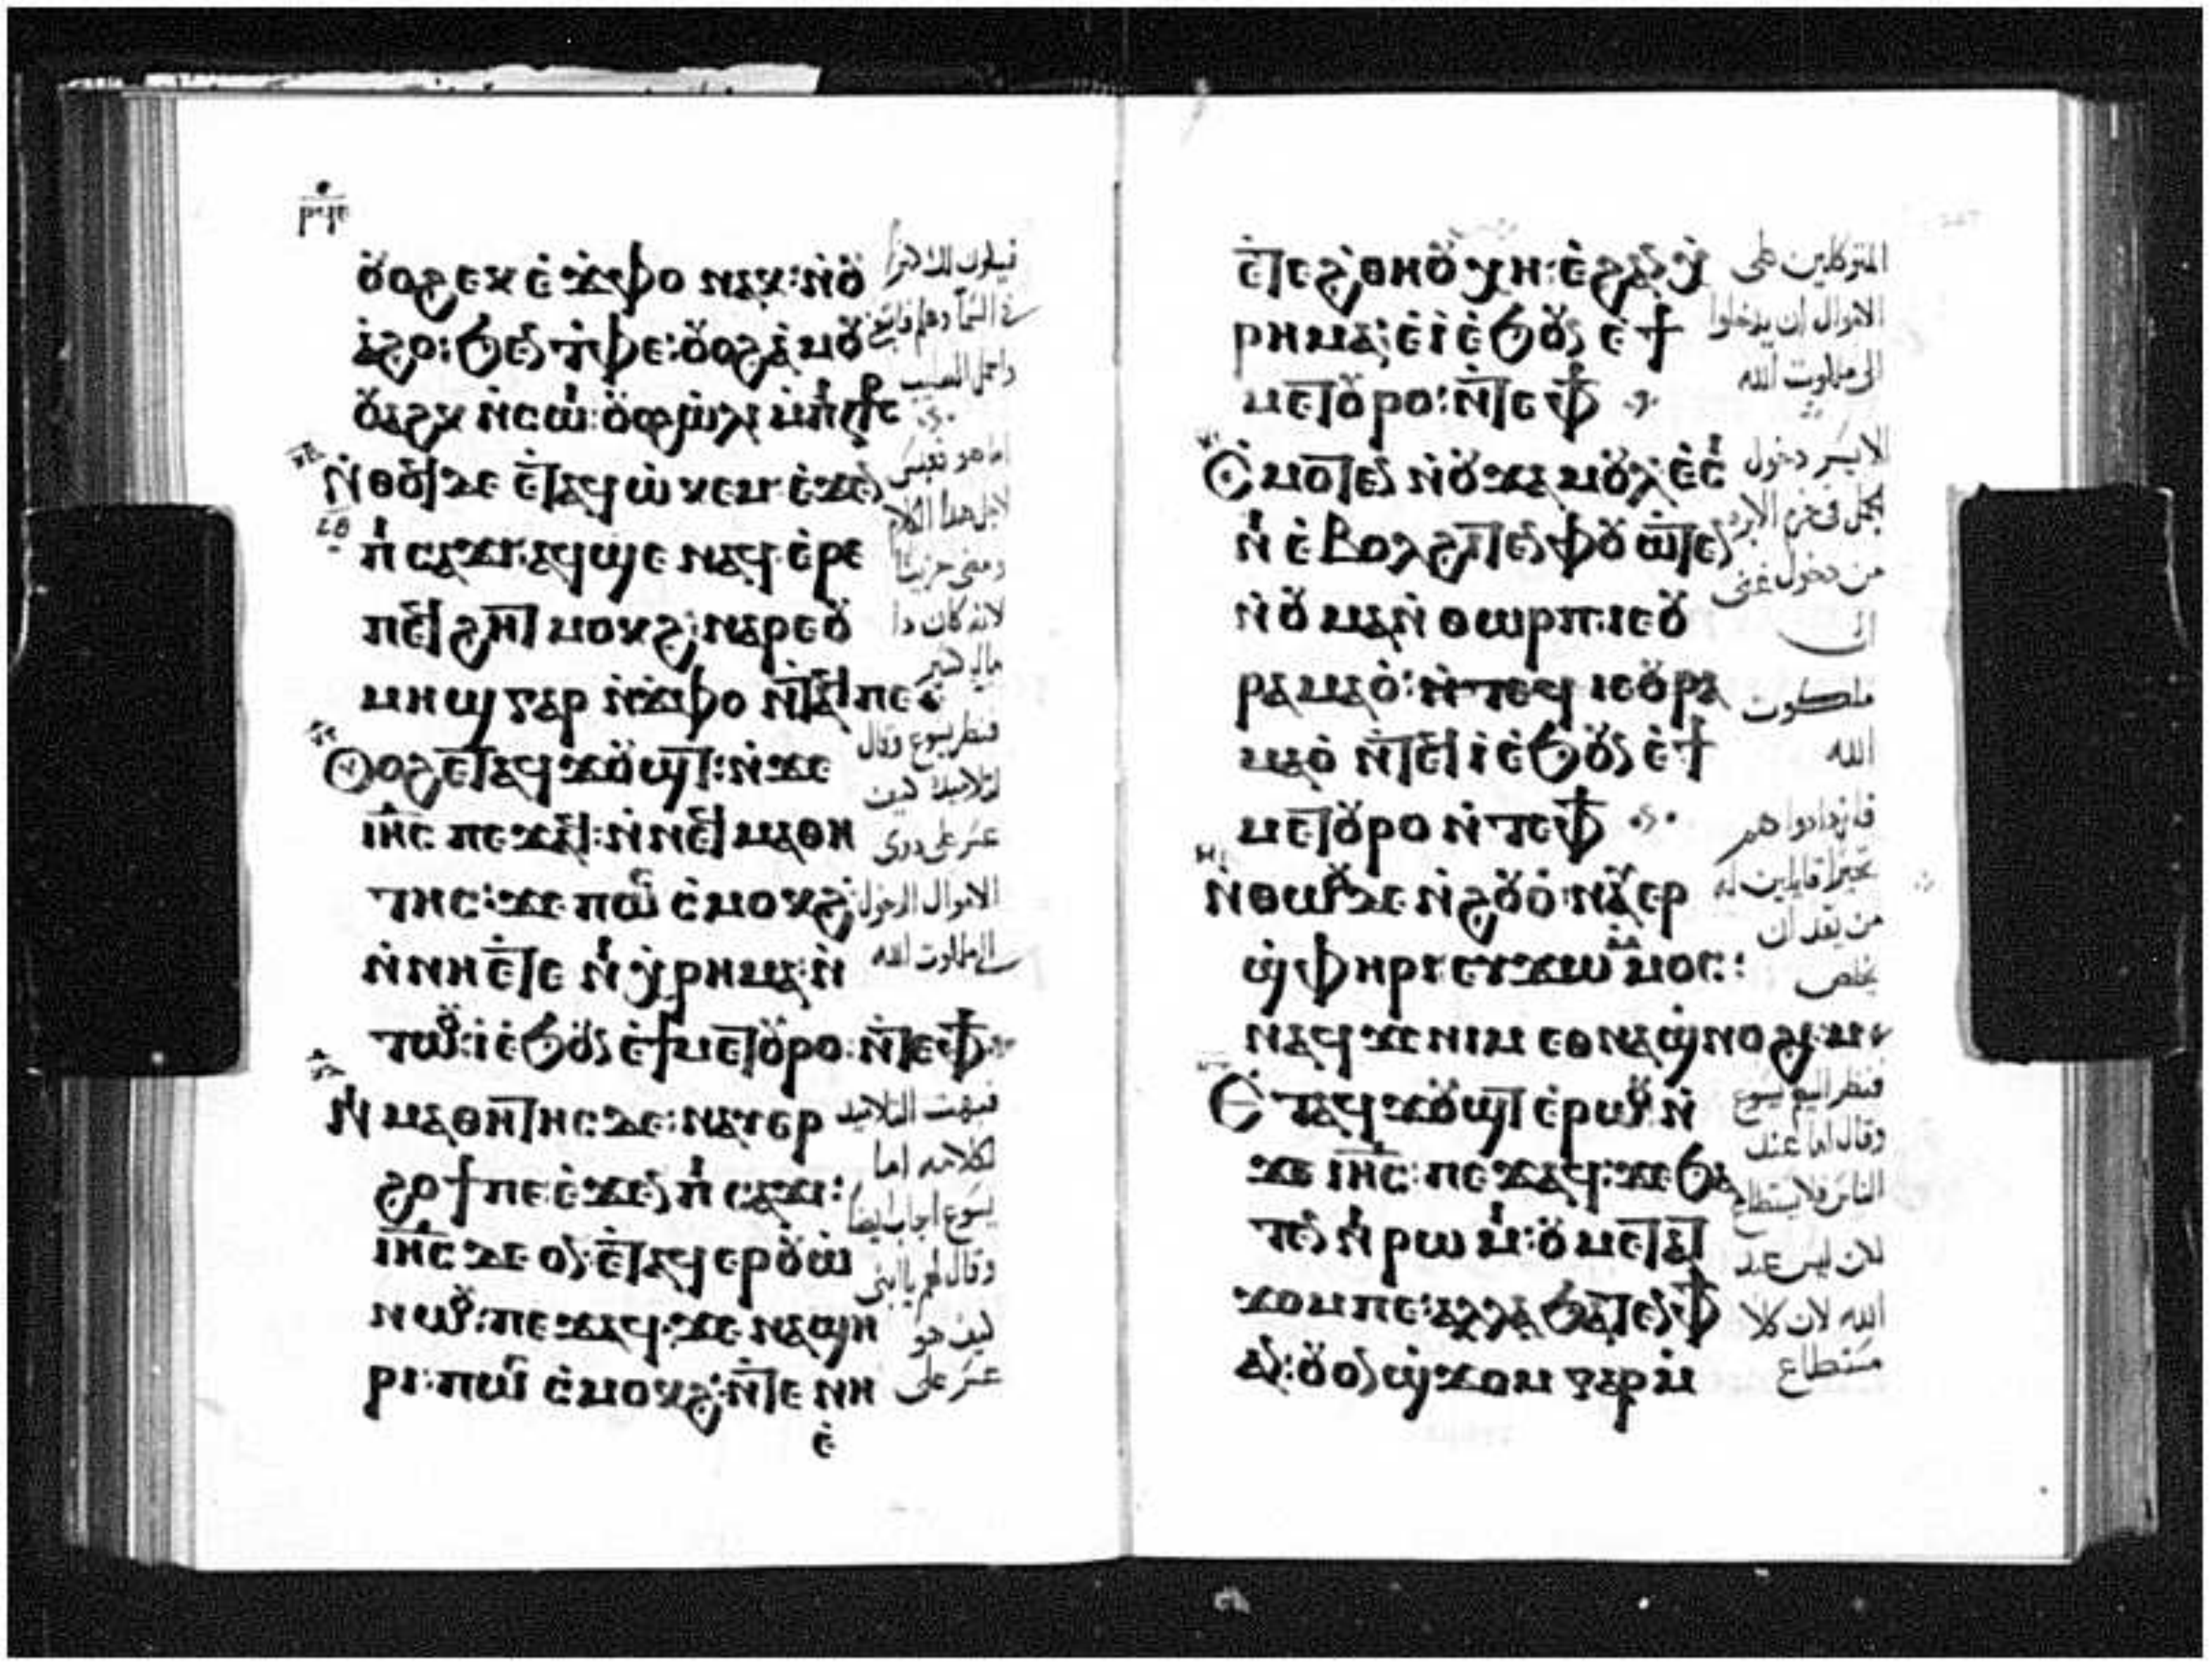 ⲣϥⲉ
ⲟⲩⲟϩ ⲉⲕⲉ̀ϫ̀ⲫⲟ ⲛⲁⲕ: ⲛ̀ⲟⲩ
ⲁ̀ϩⲟ: ϧⲉⲛ ⲧ̀ⲫⲉ: ⲟⲩⲟϩ ⲁ̀ⲙⲟⲩ
ⲟⲩⲁϩⲕ ⲛ̀ⲥⲱⲓ:
ⲛ̀ⲑⲟϥ ⲇⲉ ⲉ̀ⲧⲁϥⲱ̀ⲕⲉⲙ ⲉ̀ϫⲉⲛ
ⲡⲓ ⲥⲁϫⲓ: ⲁϥϣⲉ ⲛⲁϥ ⲉ̀ⲣⲉ
ⲡⲉϥϩⲏⲧ ⲙⲟⲕϩ: ⲛⲁⲣⲉ ⲟⲩ
ⲙⲏϣ ⲅⲁⲣ ⲛ̀ϫ̀ⲫⲟ ⲛ̀ⲧⲁϥ ⲡⲉ
ⲟⲩⲟϩ ⲉⲧⲁϥϫⲟⲩϣⲧ: ⲛ̀ϫⲉ
ⲓⲏⲥ ⲡⲉϫⲁϥ: ⲛ̀ⲛⲉϥⲙⲁⲑⲏ
ⲧⲏⲥ: ϫⲉ ⲡⲱⲥ ⲥ̀ⲙⲟⲕϩ:
ⲛ̀ⲛⲏ ⲉ̀ⲧⲉ ⲛⲓⲭ̀ⲣⲏⲙⲁ: ⲛ̀
ⲧⲱⲟⲩ: ⲓ̀ ⲉ̀ϧⲟⲩⲛ ⲉ̀ϯⲙⲉⲧⲟⲩⲣⲟ: ⲛ̀ⲧⲉ ⲫϯ
ⲛⲓⲙⲁⲑⲏⲧⲏⲥ ⲇⲉ: ⲛⲁⲩⲉⲣ
ϩⲟϯ ⲡⲉ ⲉ̀ϫⲉⲛ ⲡⲓ ⲥⲁϫⲓ:
ⲓⲏⲥ ⲇⲉ ⲟⲛ: ⲉ̀ⲧⲁϥⲉⲣⲟⲩⲱ̀
ⲛⲱⲟⲩ: ⲡⲉϫⲁϥ: ϫⲉ ⲛⲁϣⲏ
ⲣⲓ: ⲡⲱⲥ ⲥ̀ⲙⲟⲕϩ: ⲛ̀ⲧⲉ ⲛⲏ
ⲉ̀
في السما وهلم فاتبعني
واحمل الصليب
اما هو فعبس
لاجل هذا الكلام
ومضى حزينا
لانه كان ذا
مال كثير
فنظر يسوع وقال
لتلاميذه كيف
عسر على ذوى
الاموال الدخول
الى ملكوت الله
فبهت التلاميذ
لكلامه اما
يسوع اجاب ايضا
وقال لهم يا ابنى
كيف هو
عسر على
ⲉ̀ⲧⲉ ϩ̀ⲑⲏⲟⲩ ⲭⲏ: ⲉ̀ϩⲁⲛⲭ̀
ⲣⲏⲙⲁ: ⲉ̀ⲓ̀ ⲉ̀ϧⲟⲩⲛ ⲉ̀ϯ
ⲙⲉⲧⲟⲩⲣⲟ: ⲛ̀ⲧⲉ ⲫϯ
ⲥⲙⲟⲧⲉⲛ ⲛ̀ⲟⲩϫⲁⲙⲟⲩⲗ ⲉ̀ⲥⲓ
ⲛⲓ ⲉ̀ⲃⲟⲗ ϩⲓⲧⲉⲛ ⲫⲟⲩⲱⲧⲉⲛ
ⲛ̀ⲟⲩⲙⲁⲛ̀ⲑⲱⲣⲡ: ⲓⲉ ⲟⲩ
ⲣⲁⲙⲁⲟ̀: ⲛ̀ⲧⲉϥ ⲓⲉ ⲟⲩⲣⲁ
ⲙⲁⲟ̀ ⲛ̀ⲧⲉϥⲓ̀ ⲉ̀ϧⲟⲩⲛ ⲉ̀ϯ
ⲙⲉⲧⲟⲩⲣⲟ ⲛ̀ⲧⲉ ⲫϯ
ⲛ̀ⲑⲱⲟⲩ ⲇⲉ ⲛ̀ϩⲟⲩⲟ̀: ⲛⲁⲩⲉⲣ
ϣ̀ⲫⲏⲣⲓ ⲉⲩϫⲱ ⲙ̀ⲙⲟⲥ:
ⲛⲁϥ ϫⲉ ⲛⲓⲙ ⲉⲑⲛⲁϣ̀ⲛⲟϩⲉⲙ
ⲉⲧⲁϥϫⲟⲩϣⲧ ⲉ̀ⲣⲱⲟⲩ: ⲛ̀
ϫⲉ ⲓⲏⲥ: ⲡⲉϫⲁϥ: ϫⲉ ϧⲁ
ⲧⲉⲛ ⲛⲓ ⲣⲱⲙⲓ: ⲟⲩⲙⲉⲧⲁⲧ
ϫⲟⲙ ⲡⲉ: ⲁⲗⲗⲁ ϧⲁⲧⲉⲛ ⲫϯ
ⲁⲛ: ⲟⲩⲟⲛ ϣ̀ϫⲟⲙ ⲅⲁⲣ ⲙ̀
المتوكلين على
الاموال ان يدخلوا
الى ملكوت الله
لايسر دخول
جمل فى خرم الابره
من دخول غنى
الى
ملكوت
الله
فازدادوا هم
تحيرا قايلين له
من يقدر ان
يخلص
فنظر اليهم يسوع
وقال اما عند
الناس فلا يستطاع
لكن ليس عند
الله لان كلا
مستطاع